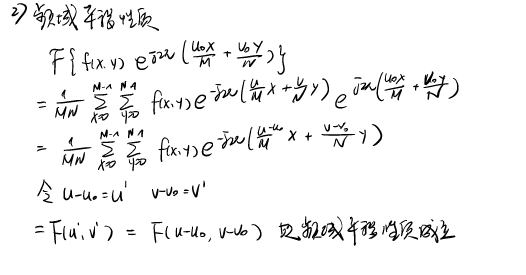 2) 频域平移性质
F{f(x,y) e^{j2π(u₀x/M + v₀y/N)}}
= 1/MN Σ_{x=0}^{M-1} Σ_{y=0}^{N-1} f(x,y) e^{-j2π(u/M x + v/N y)} e^{j2π(u₀x/M + v₀y/N)}
= 1/MN Σ_{x=0}^{M-1} Σ_{y=0}^{N-1} f(x,y) e^{-j2π(u-u₀/M x + v-v₀/N y)}
令 u-u₀=u' v-v₀=v'
= F(u',v') = F(u-u₀, v-v₀) 频域平移性质成立